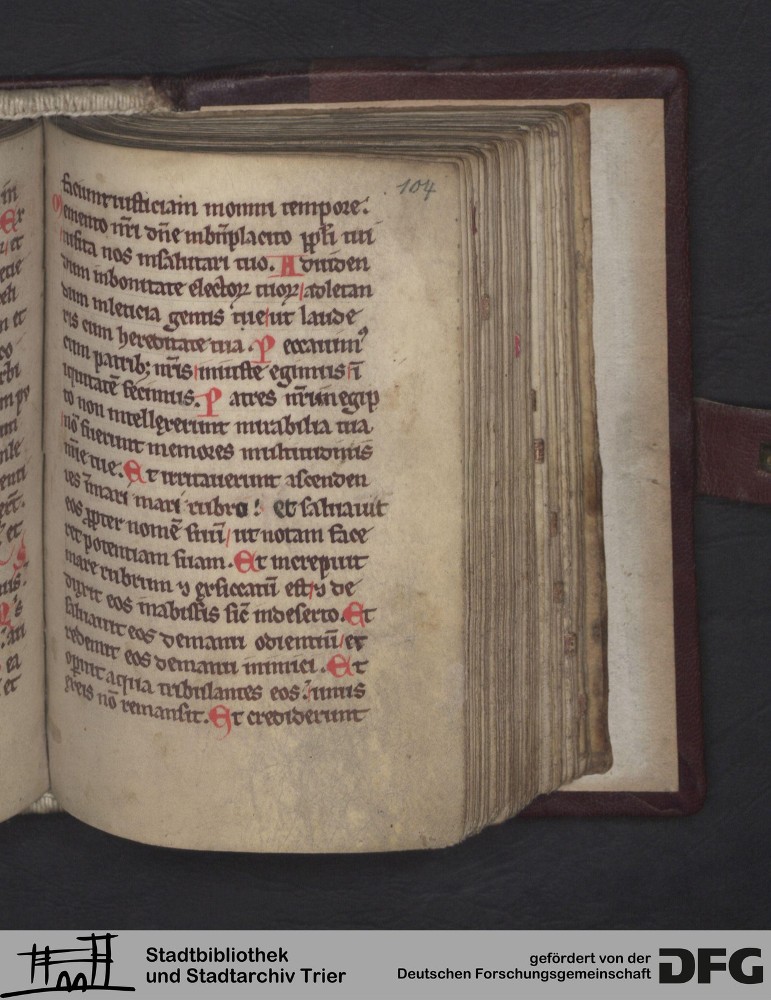 104
faciunt iusticiam in omni tempore.
Memento nr̄i dn̄e in bn̄placito pp̄li tui
uisita nos in salutari tuo. Ad uiden
dum in bonitate electoꝝ tuoꝝ ad letan
dum in leticia gentis tue ut laude
ris cum hereditate tua. Peccauimꝰ
cum patrib; nr̄is iniuste egimus ī
iquitatē fecimus. Patres nr̄i in egip
to non intellexerunt mirabilia tua
nō fuerunt memores multitudinis
mīe tue. Et irritauerunt ascenden
tes ī mari mari rubro: et saluauit
eos ꝓpter nomē suū ut notam face
ret potentiam suam. Et increpuit
mare rubrum ⁊ exsiccatū est ⁊ de
duxit eos in abissis sic̄ in deserto. Et
saluauit eos de manu odientiū et
redemit eos de manu inimici. Et
operuit aqua tribulantes eos: unus
ex eis nō remansit. Et crediderunt
Stadtbibliothek
und Stadtarchiv Trier
gefördert von der
Deutschen Forschungsgemeinschaft
DFG